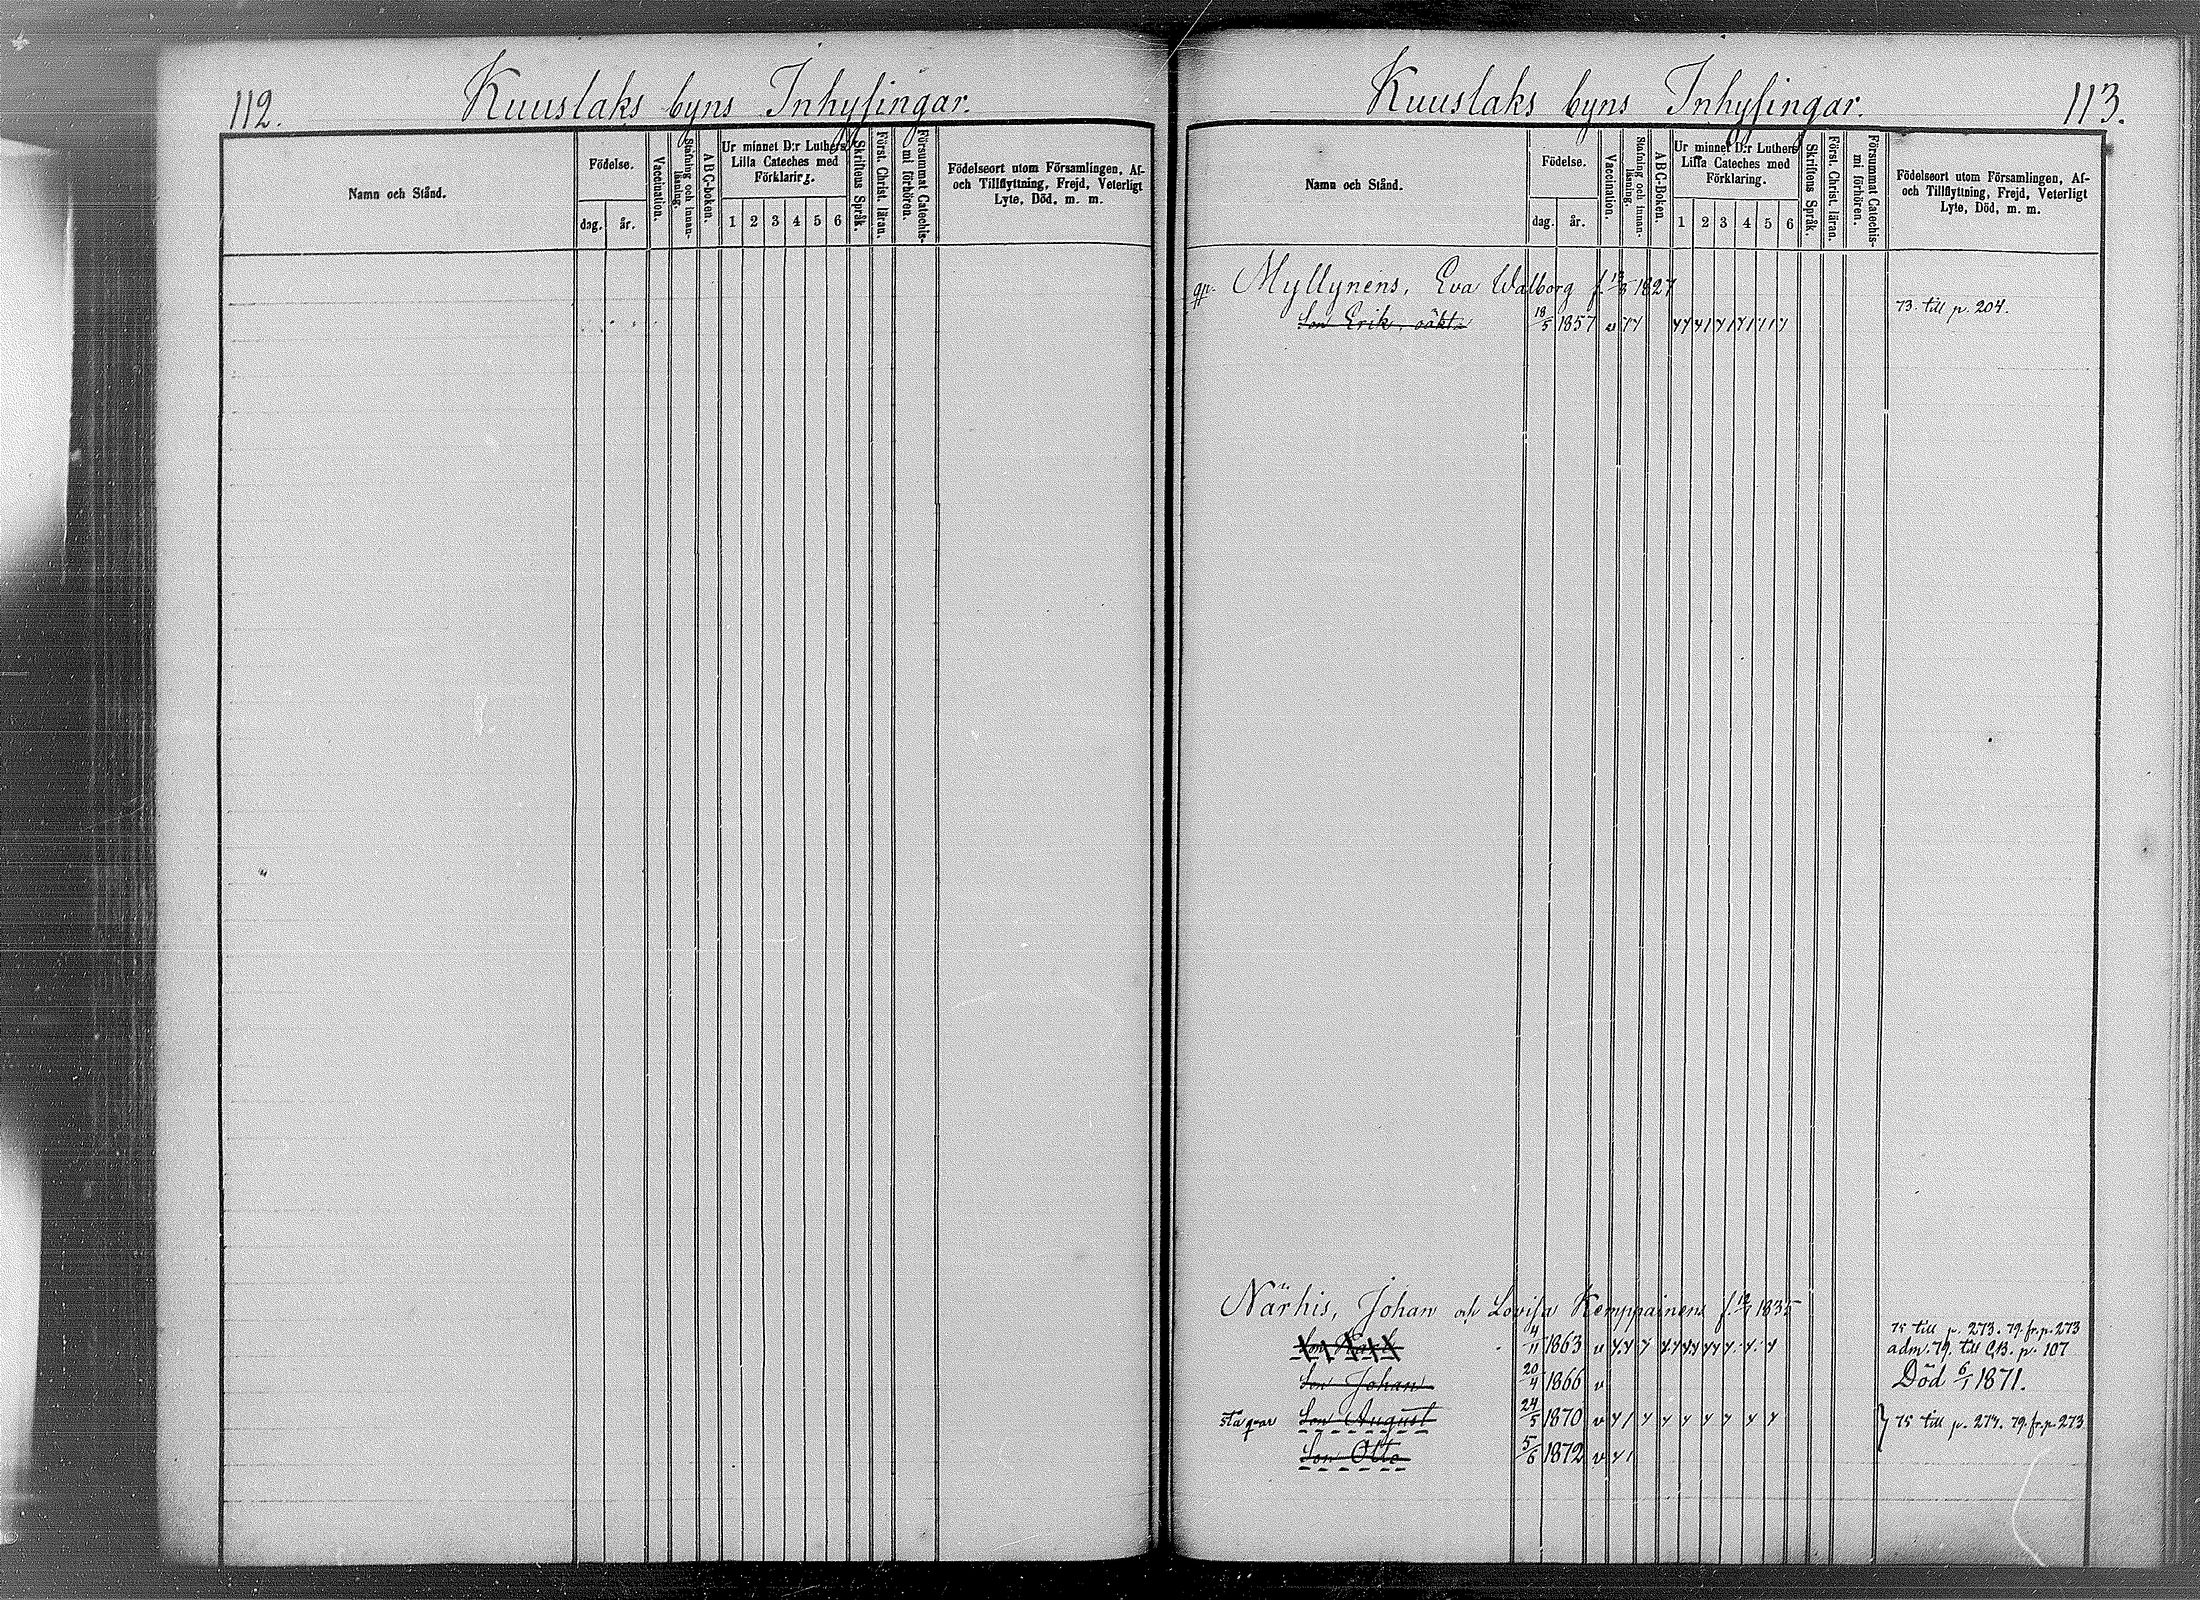 112.
Kuuslaks byns Inhysingar.
Namn och Stånd.
Födelse.
dag.
år.
Vaccination.
Stafning och innan-
läsning.
ABC-boken.
Ur minnet D:r Luthers
Lilla Cateches med
Förklaring.
1 2 3 4 5 6
Skriftens Språk.
Först. Christ. läran.
Försummat Catechis-
mi förhören.
Födelseort utom Församlingen, Af-
och Tillflyttning, Frejd, Veterligt
Lyte, Död, m. m.
Kuuslaks byns Inhysingar.
113.
Namn och Stånd.
Födelse.
dag.
år.
Vaccination.
Stafning och innan-
läsning.
ABC-Boken.
Ur minnet D:r Luthers
Lilla Cateches med
Förklaring.
1 2 3 4 5 6
Skriftens Språk.
Först. Christ. läran.
Försummat Catechis-
mi förhören.
Födelseort utom Församlingen, Af-
och Tillflyttning, Frejd, Veterligt
Lyte, Död, m. m.
Myllynens, Eva Walborg f. 1827
Son Erik, oäkt. 18/5 1857 v 73. till p. 204.
Närhis, Johan och Lovisa Kemppainens f. 1835
75 till p. 273. 79. fr. p. 273
Son 4/11 1863 v adm. 79. till p. 107
Son Johan 20/4 1866 v Död 6/1 1871.
Son August 24/5 1870 v 75 till p. 274. 79. fr. p. 273
Son Otto 5/6 1872 v